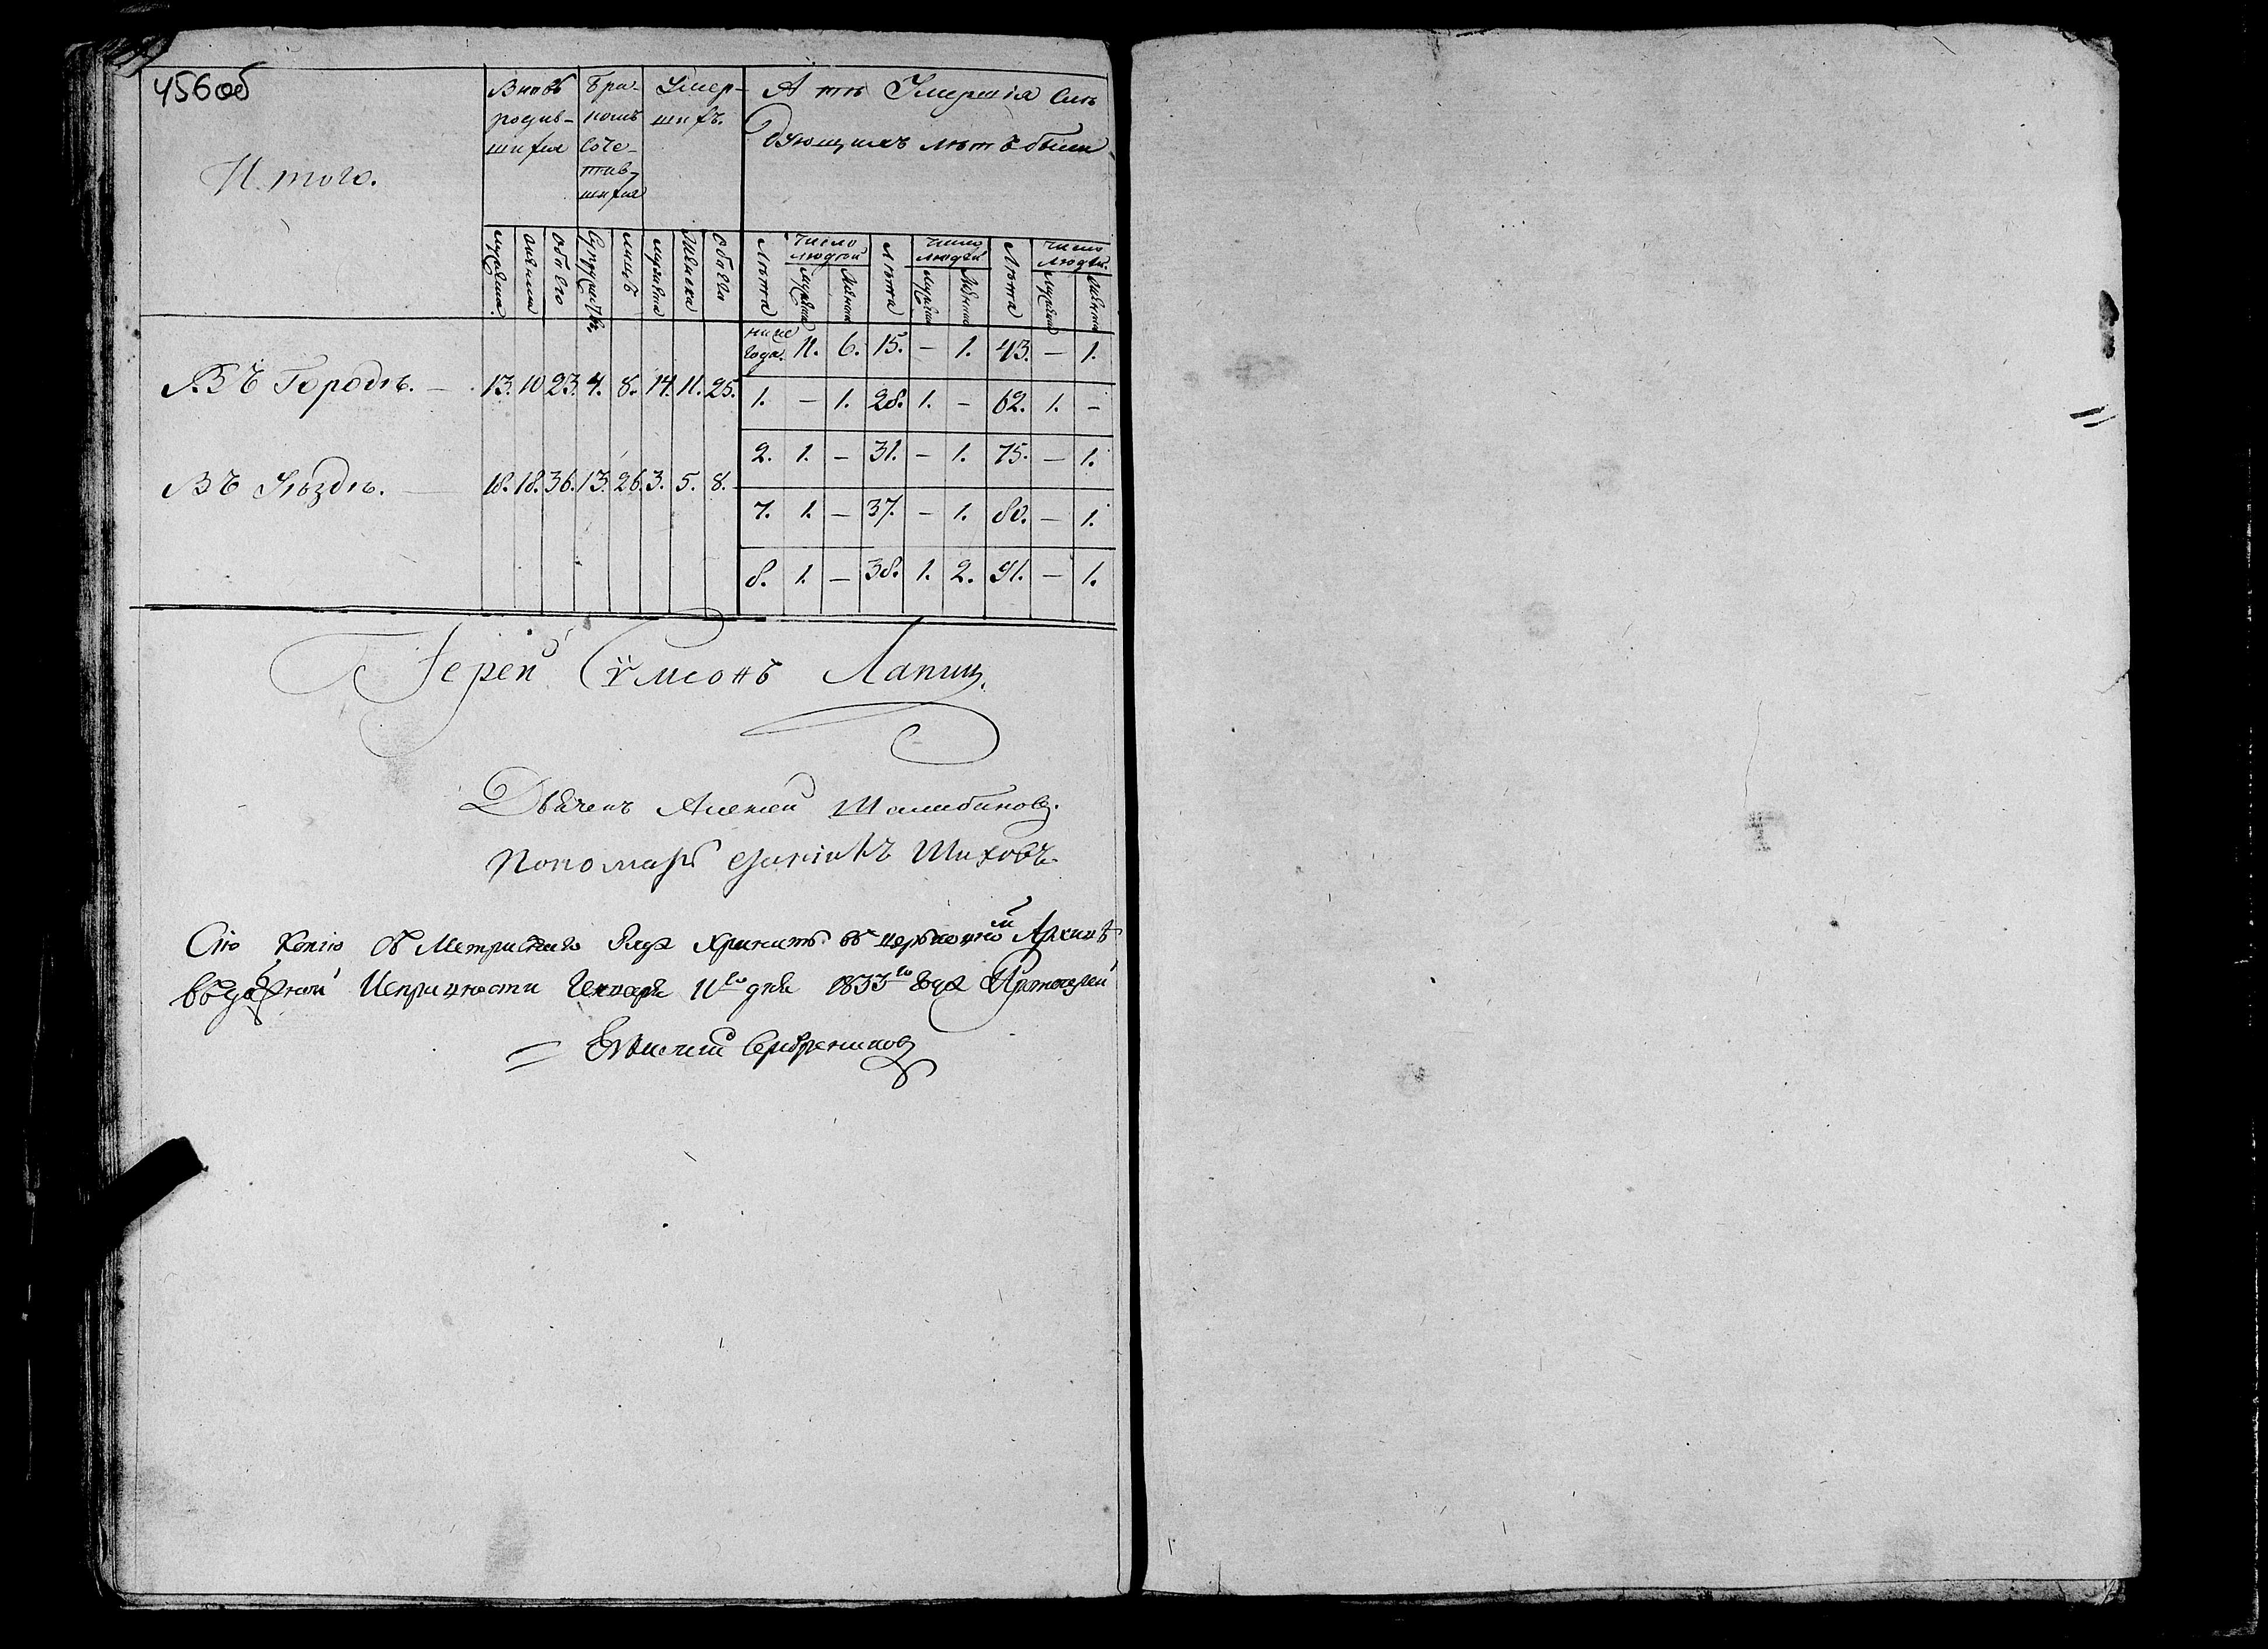 456об
Итого.
Вновь родив-шихся
Бра-комъ Соче-тав-шихся
Умер-шихъ.
А тѣ Умершія Слѣ
дующихъ лѣтъ были
мужеска женска обоего Супружествъ лицъ мужеска Женска Обоего Лѣта число людей мужеска женска Лѣта число людей мужеска женска Лѣта число людей мужеска женска
ниже года. 11. 6. 15. – 1. 43. – 1.
Въ Городѣ. – 13. 10. 23. 4. 8. 14. 11. 25.
1. – 1. 28. 1. – 62. 1. –
2. 1. – 31. – 1. 75. – 1.
Въ Уѣздѣ. – 18. 18. 36. 13. 26. 3. 5. 8.
7. 1. – 37. – 1. 80. – 1.
8. 1. – 38. 1. 2. 91. – 1.
Іерей Сѵмеонъ Лапинъ
Дьячекъ Алексей
Пономарь Шиховъ.
Сію Копію съ хранить въ церковной Архивѣ
въ Генваря 11го дня 1833го года Протоіерей
Евгений Серебрениковъ